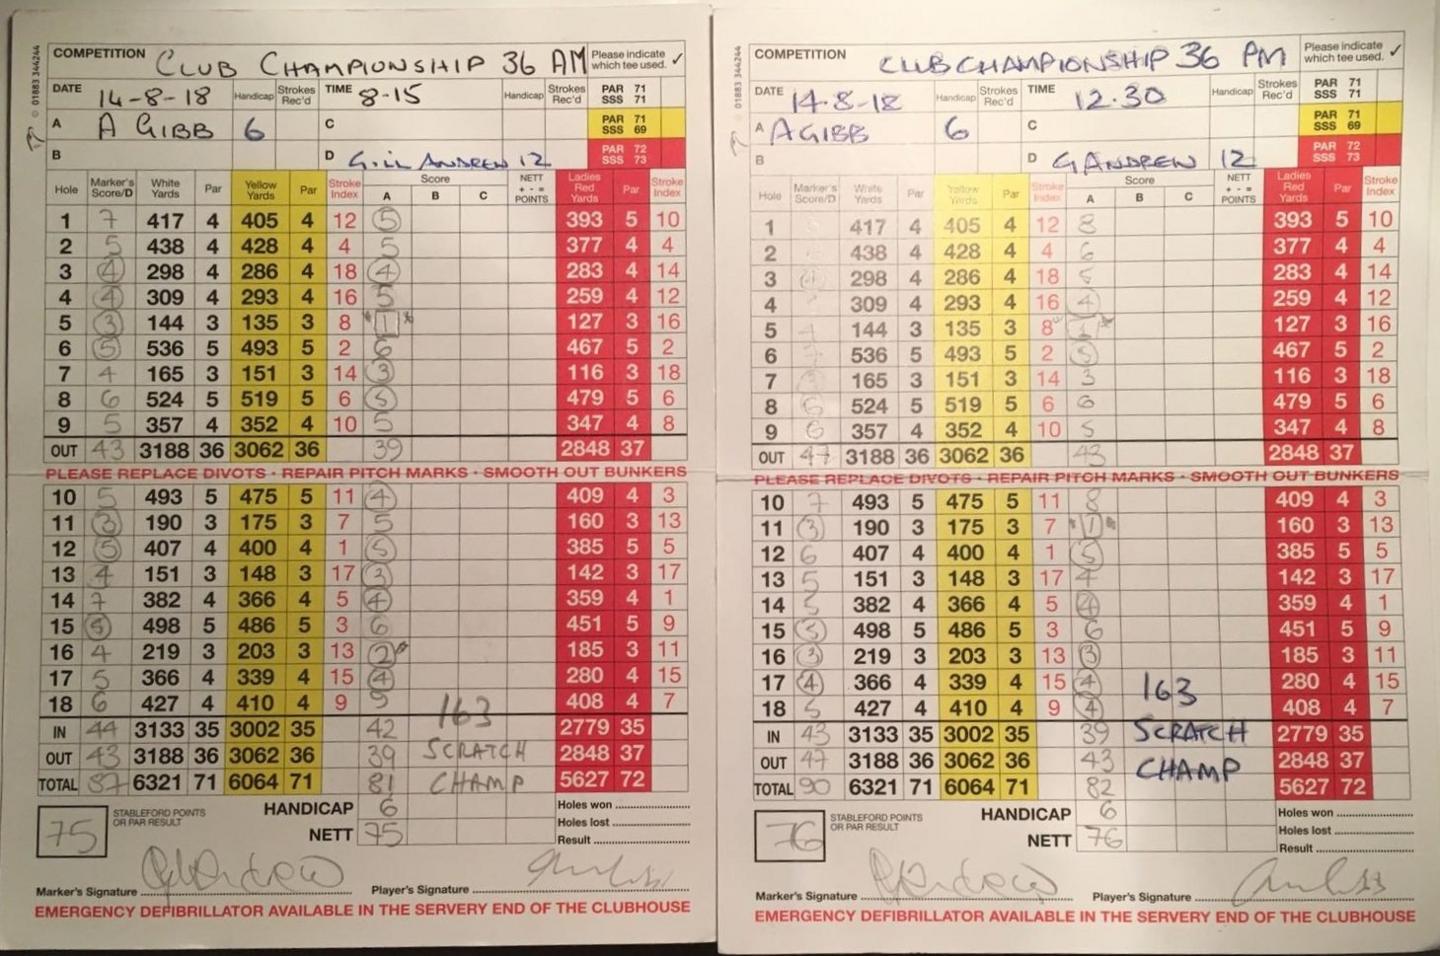 01883 344244
COMPETITION CLUB CHAMPIONSHIP 36 AM Please indicate which tee used. ✓
DATE 14-8-18 Handicap Strokes Rec'd TIME 8-15 Handicap Strokes Rec'd PAR 71 SSS 71
A A GIBB 6 C PAR 71 SSS 69
B D GILL ANDREW 12 PAR 72 SSS 73
Hole Marker's Score/D White Yards Par Yellow Yards Par Stroke Index Score A B C NETT + - = POINTS Ladies Red Yards Par Stroke Index
1 7 417 4 405 4 12 5 393 5 10
2 5 438 4 428 4 4 5 377 4 4
3 4 298 4 286 4 18 4 283 4 14
4 4 309 4 293 4 16 5 259 4 12
5 3 144 3 135 3 8 1 127 3 16
6 5 536 5 493 5 2 6 467 5 2
7 4 165 3 151 3 14 3 116 3 18
8 6 524 5 519 5 6 5 479 5 6
9 5 357 4 352 4 10 5 347 4 8
OUT 43 3188 36 3062 36 39 2848 37
PLEASE REPLACE DIVOTS · REPAIR PITCH MARKS · SMOOTH OUT BUNKERS
10 5 493 5 475 5 11 4 409 4 3
11 3 190 3 175 3 7 5 160 3 13
12 5 407 4 400 4 1 5 385 5 5
13 4 151 3 148 3 17 3 142 3 17
14 7 382 4 366 4 5 4 359 4 1
15 5 498 5 486 5 3 6 451 5 9
16 4 219 3 203 3 13 2 185 3 11
17 5 366 4 339 4 15 4 280 4 15
18 6 427 4 410 4 9 5 163 408 4 7
IN 44 3133 35 3002 35 42 2779 35
OUT 43 3188 36 3062 36 39 SCRATCH 2848 37
TOTAL 87 6321 71 6064 71 81 CHAMP 5627 72
75 STABLEFORD POINTS OR PAR RESULT HANDICAP 6 Holes won
NETT 75 Holes lost
Result
Marker's Signature Player's Signature
EMERGENCY DEFIBRILLATOR AVAILABLE IN THE SERVERY END OF THE CLUBHOUSE
01883 344244
COMPETITION CLUB CHAMPIONSHIP 36 PM Please indicate which tee used. ✓
DATE 14-8-18 Handicap Strokes Rec'd TIME 12.30 Handicap Strokes Rec'd PAR 71 SSS 71
A A GIBB 6 C PAR 71 SSS 69
B D G ANDREW 12 PAR 72 SSS 73
Hole Marker's Score/D White Yards Par Yellow Yards Par Stroke Index Score A B C NETT + - = POINTS Ladies Red Yards Par Stroke Index
1 417 4 405 4 12 8 393 5 10
2 438 4 428 4 4 6 377 4 4
3 298 4 286 4 18 5 283 4 14
4 309 4 293 4 16 4 259 4 12
5 144 3 135 3 8 127 3 16
6 536 5 493 5 2 5 467 5 2
7 165 3 151 3 14 3 116 3 18
8 6 524 5 519 5 6 6 479 5 6
9 6 357 4 352 4 10 5 347 4 8
OUT 47 3188 36 3062 36 43 2848 37
PLEASE REPLACE DIVOTS · REPAIR PITCH MARKS · SMOOTH OUT BUNKERS
10 7 493 5 475 5 11 8 409 4 3
11 3 190 3 175 3 7 1 160 3 13
12 6 407 4 400 4 1 5 385 5 5
13 5 151 3 148 3 17 4 142 3 17
14 5 382 4 366 4 5 4 359 4 1
15 498 5 486 5 3 6 451 5 9
16 3 219 3 203 3 13 3 185 3 11
17 4 366 4 339 4 15 4 163 280 4 15
18 5 427 4 410 4 9 4 408 4 7
IN 43 3133 35 3002 35 39 SCRATCH 2779 35
OUT 47 3188 36 3062 36 43 CHAMP 2848 37
TOTAL 90 6321 71 6064 71 82 5627 72
76 STABLEFORD POINTS OR PAR RESULT HANDICAP 6 Holes won
NETT 76 Holes lost
Result
Marker's Signature Player's Signature
EMERGENCY DEFIBRILLATOR AVAILABLE IN THE SERVERY END OF THE CLUBHOUSE